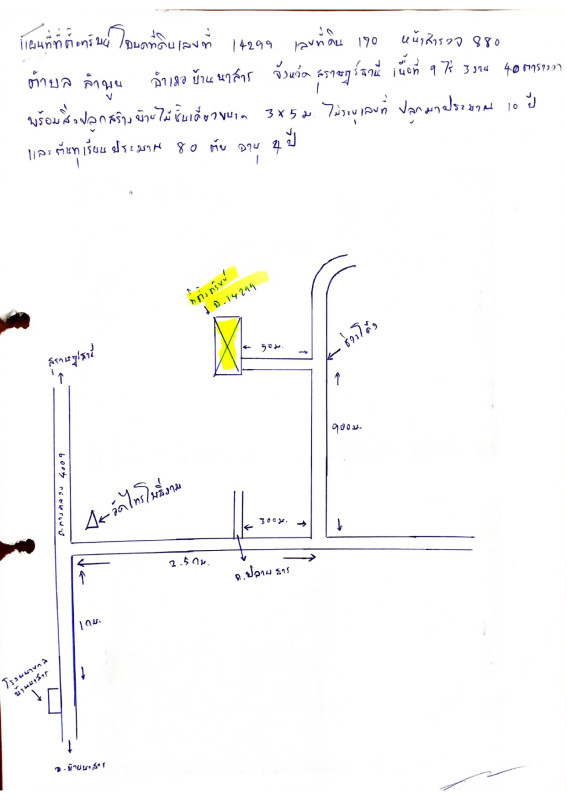 แผนที่ที่ตั้งทรัพย์ โฉนดที่ดินเลขที่ 14299 เลขที่ดิน 190 หน้าสำรวจ 880
ตำบล ลำพูน อำเภอบ้านนาสาร จังหวัดสุราษฎร์ธานี เนื้อที่ 9 ไร่ 3 งาน 40 ตารางวา
พร้อมสิ่งปลูกสร้างบ้านไม้ชั้นเดียวขนาด 3x5 ม ไม่ระบุเลขที่ ปลูกมาประมาณ 10 ปี
และต้นทุเรียนประมาณ 80 ต้น อายุ 4 ปี
ที่ตั้งทรัพย์
ฉ.14299
สุราษฎร์ธานี
50 ม.
ช่วงโค้ง
900 ม.
ถ.ทางหลวง 4009
วัดไทรโพธิ์งาม
300 ม.
2.5 กม.
ถ.ปลายธาร
1 กม.
โรงพยาบาล
บ้านนาสาร
อ.บ้านนาสาร